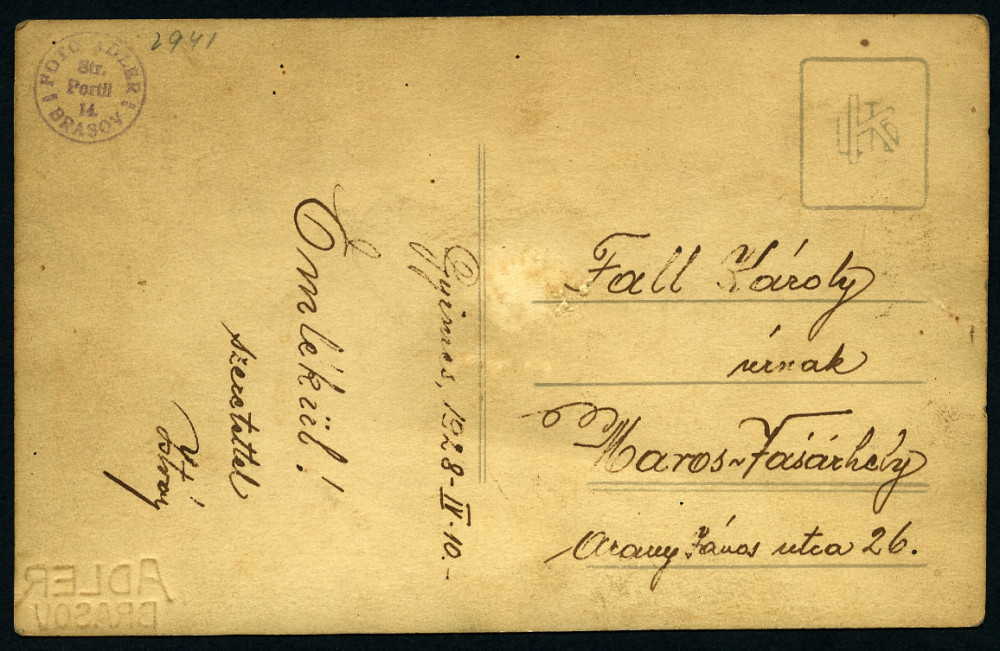 2941
FOTO ADLER
Str.
Portii
14.
BRASOV
Gyimes, 1928-IV-10.-
Emlékül!
szeretettel
Fall Károly
úrnak
Maros-Vásárhely
Arany János utca 26.
ADLER
BRASOV